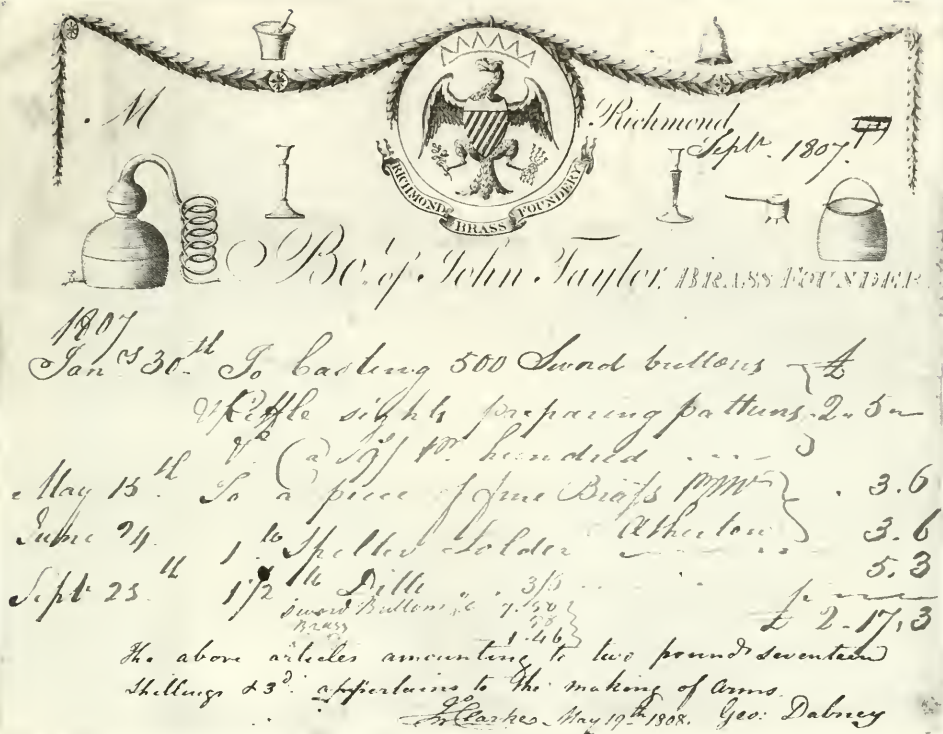 M
Richmond
Septr. 1807
RICHMOND BRASS FOUNDERY
Bot. of John Taylor, BRASS FOUNDER
1807
Jany 30th To Casting 500 Sword buttons £
& Riffle sights preparing patturns 2..5..
&c (a 9s/ pr. hundred ....
May 15th To a piece of fine Brass . 3.6
June 24. 1 lb Spelter Solder Atherton 3.6
Sept 25th 1 1/2 lb Ditto .. 3/6 .. 5.3
Sword Buttons &c 7.50
Brass 58 £ 2-17,3
1.46
The above articles amounting to two pounds seventeen
shillings & 3d. appertains to the making of Arms.
Jn Clarke May 19th 1808. Geo: Dabney